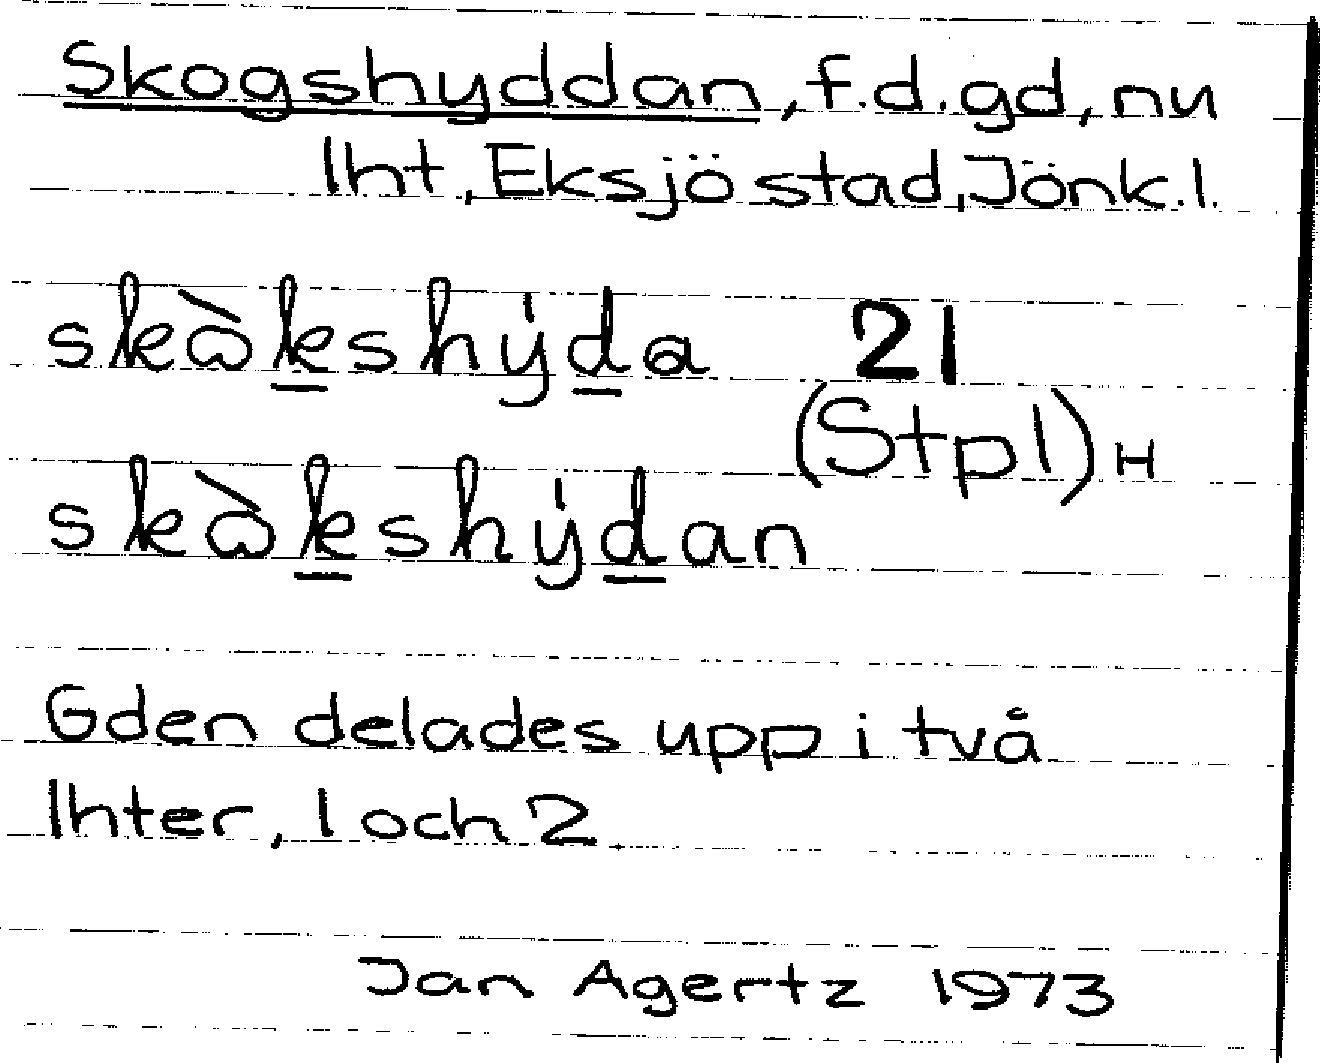 Skogshyddan, f.d. gd, nu
lht, Eksjö stad, Jönk. l.
skὼkshẏda 21
(Stpl) H
skὼkshẏdan
Gden delades upp i två
lhter, 1 och 2.
Jan Agertz 1973